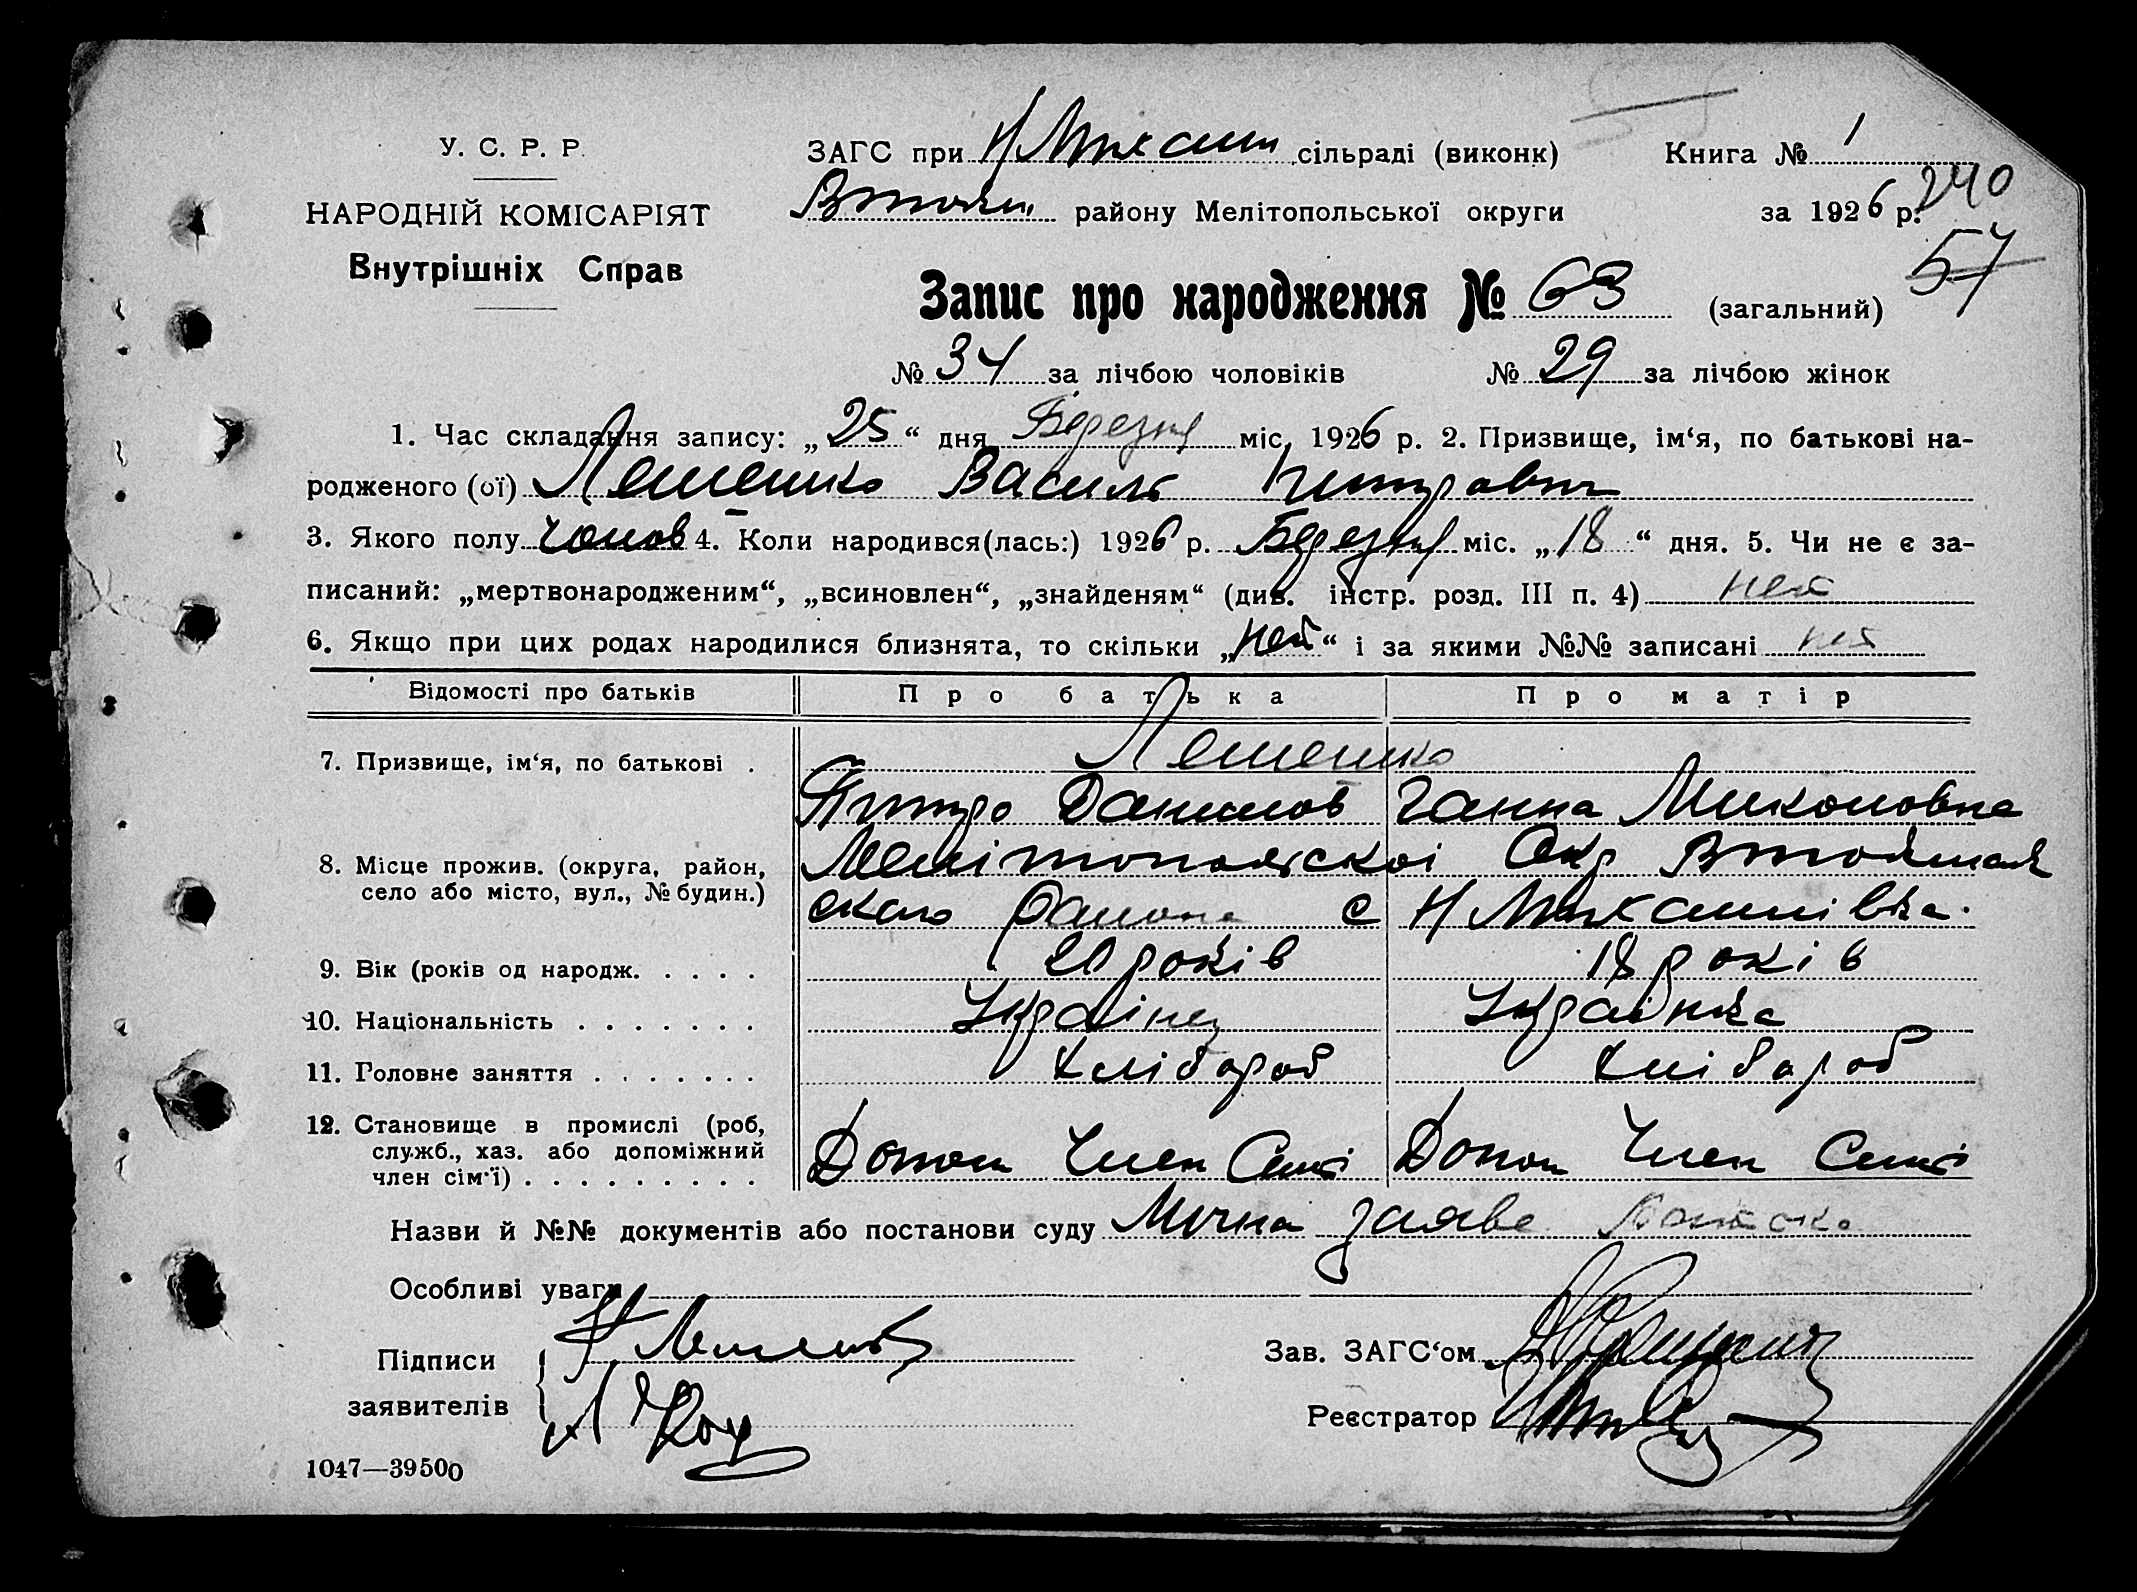 У. С. Р. Р.
НАРОДНІЙ КОМІСАРІЯТ
Внутрішніх Справ
ЗАГС при сільраді (виконк) Книга № 1
району Мелітопольської округи за 1926 р.
240
57
Запис про народження № 63 (загальний)
№ 34 за лічбою чоловіків № 29 за лічбою жінок
1. Час складання запису: „25“ дня Березня міс. 1926 р. 2. Призвище, ім‘я, по батькові на-
родженого (ої) Лешенко Василь Питрович
3. Якого полу чолов 4. Коли народився(лась:) 1926 р. Березня міс. „18“ дня. 5. Чи не є за-
писаний: „мертвонародженим“, „всиновлен“, „знайденям“ (див. інстр. розд. III п. 4) нет
6. Якщо при цих родах народилися близнята, то скільки „нет“ і за якими №№ записані нет
Відомості про батьків Про батька Про матір
7. Призвище, ім‘я, по батькові . Лешенко
Питро Данилов Ганна Миколовна
8. Місце прожив. (округа, район, село або місто, вул., № будин.) Мелітопольскоі Окр
ского Района с Н
9. Вік (років од народж. . . . . 20 років 18 років
10. Національність . . . . . . . Украінец Украінка
11. Головне заняття . . . . . . . Хлібороб Хлібороб
12. Становище в промислі (роб, служб., хаз. або допоміжний член сім‘ї) . . . . . . . . . Допом Член Семі Допом Член Семі
Назви й №№ документів або постанови суду заява
Особливі уваги
Підписи
заявителів
Зав. ЗАГС‘ом
Реєстратор
1047—39500